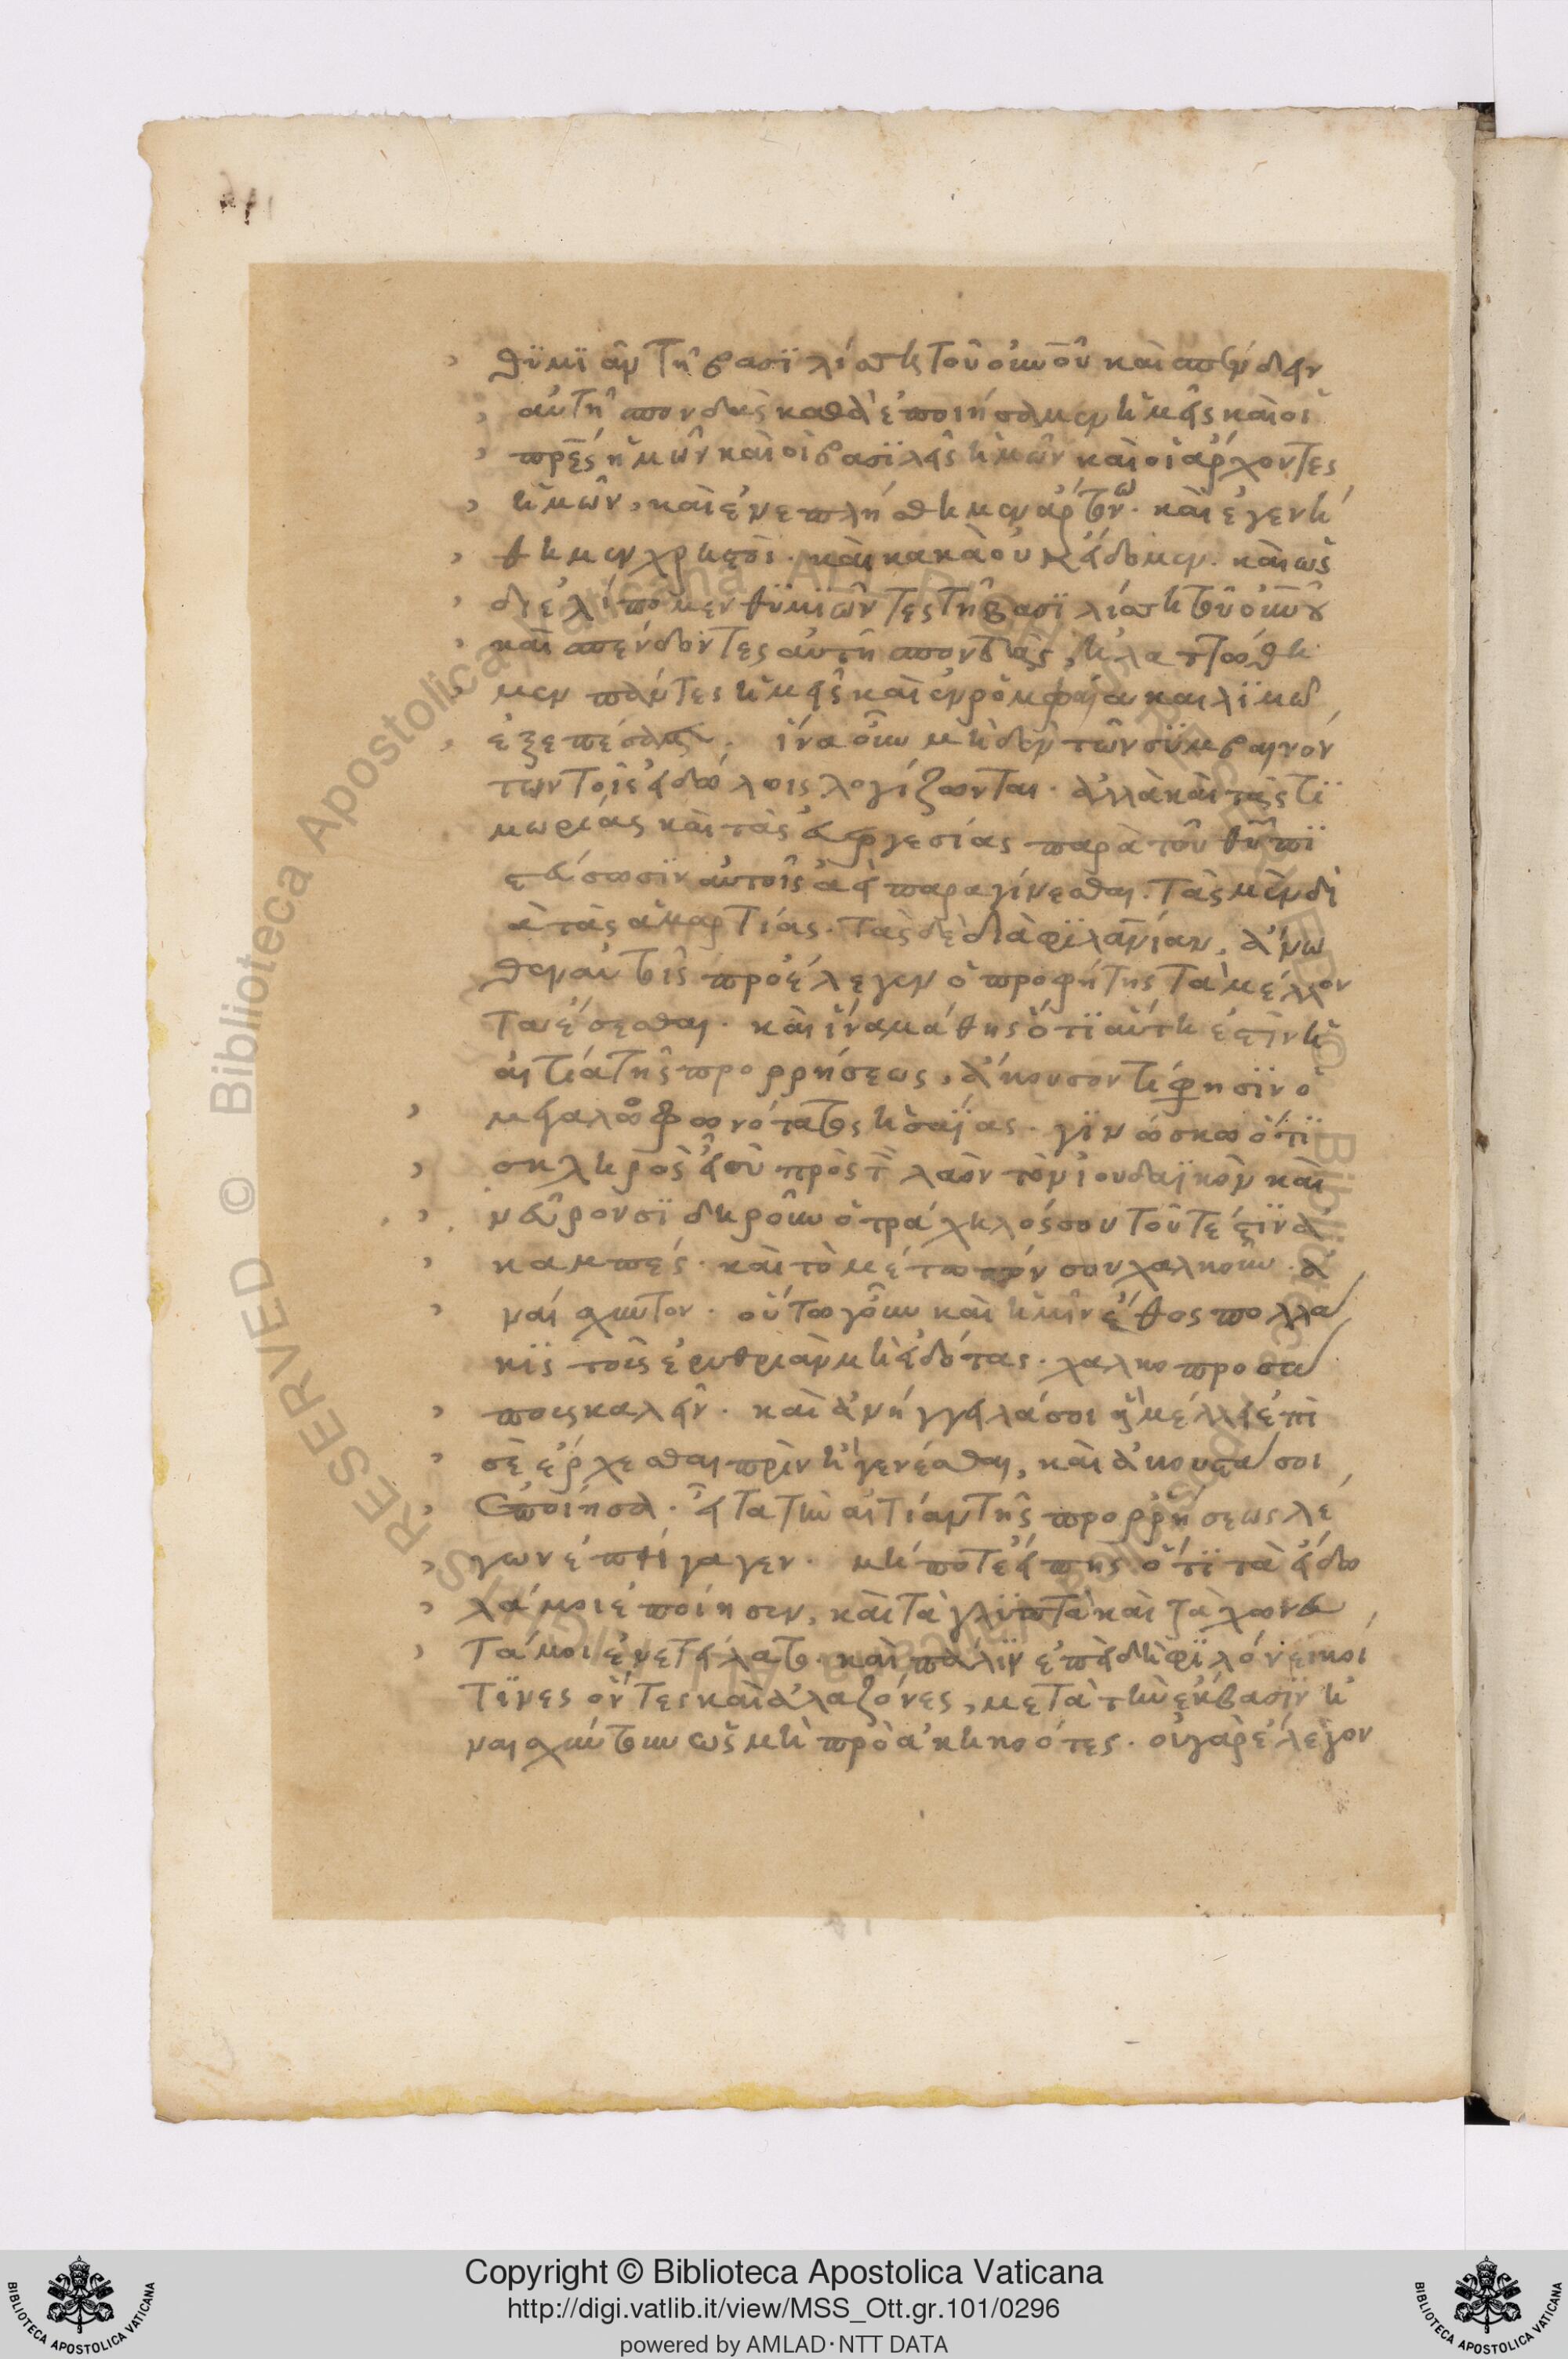 θϋμϊᾶν τῆ βασϊλίσση τοῦ οὐνοῦ καὶ σπένδειν
αὐτῆ σπονδὰς καθὰ ἐποιήσαμεν ἡμεῖς καὶ οἱ
πρ̅ες ἡμῶν καὶ οἱ βασϊλεῖς ἡμῶν καὶ οἱ ἄρχοντες
ἡμῶν, καὶ ἐνεπλήσθημεν ἄρτων. καὶ ἐγενή
θημεν χρηστοὶ. καὶ κακὰ οὐκ εἴδομεν. καὶ ὡς
διελίπομεν θϋμϊῶντες τῆ βασϊλίσση τοῦ οὐνοῦ
καὶ σπένδοντες αὐτῆ σπονδὰς, ἠλαττώθη
μεν πάντες ἡμεῖς καὶ ἐν ῥομφαία καὶ λϊμῶ
ἐξεπέσαμεν. ἵνα οὖν μηδὲν τῶν σϋμβαινόν
των τοῖς εἰδώλοις λογίζωνται. ἀλλὰ καὶ τὰς τϊ
μωρίας καὶ τὰς εὐεργεσίας παρὰ τοῦ θῦ πϊ
στεύσωσϊν αὐτοῖς ἀεὶ παραγίνεσθαι. τὰς μὲν δϊ
ὰ τὰς ἁμαρτίας. τὰς δὲ διὰ φϊλανίαν, ἄνω
θεν αὐτοῖς προέλεγεν ὁ προφήτης τὰ μέλλον
τα ἔσεσθαι. καὶ ἵνα μάθης ὅτϊ αὕτη ἐστὶν ἡ
αἰτία τῆς προρρήσεως, ἄκουσον τί φησϊν ὁ
μεγαλοφωνότατος ἡσαΐας. γϊνώσκω ὅτϊ
σκληρὸς εἶ σὺ πρὸς τ̅ λαὸν τὸν ἰουδαϊκὸν καὶ
νεῦρον σϊδηροῦν ὁ τράχηλός σου τοῦτέστϊν ἀ
καμπές. καὶ τὸ μέτωπόν σου χαλκοῦν. ἀ
ναίσχυντον. οὕτω γοῦν καὶ ἡμῖν ἔθος πολλά
κϊς τοὺς ἐρυθριᾶν μὴ εἰδότας. χαλκοπροσώ
πους καλεῖν. καὶ ἀνήγγειλά σοι ἃ μέλλει ἐπὶ
σὲ ἔρχεσθαι πρὶν ἢ γενέσθαι, καὶ ἀκουστά σοι
ἐποίησα. εἶτα τὴν αἰτίαν τῆς προρρήσεως λέ
γων ἐπήγαγεν. μή ποτε εἴπης ὅτϊ τὰ εἴδω
λά μοι ἐποίησεν, καὶ τὰ γλϋπτὰ καὶ τὰ χωνευ
τά μοι ἐνετείλατο. καὶ πάλϊν ἐπειδὴ φϊλόνεικοί
τϊνες ὄντες καὶ ἀλαζόνες, μετὰ τὴν ἔκβασϊν ἠ
ναισχύντουν ὡς μὴ προακηκοότες. οὐ γὰρ ἔλεγον
Copyright © Biblioteca Apostolica Vaticana
http://digi.vatlib.it/view/MSS_Ott.gr.101/0296
powered by AMLAD·NTT DATA